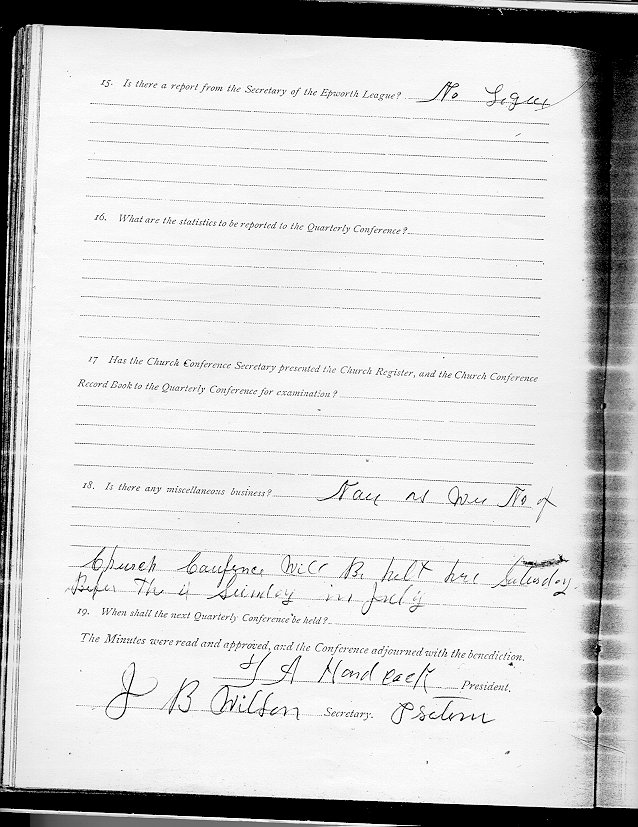 15. Is there a report from the Secretary of the Epworth League? No Legue
16. What are the statistics to be reported to the Quarterly Conference?
17 Has the Church Conference Secretary presented the Church Register, and the Church Conference
Record Book to the Quarterly Conference for examination?
18. Is there any miscellaneous business? No of
Church Will Be helt here Saturday
Befor The Sunday in July
19. When shall the next Quarterly Conference be held?
The Minutes were read and approved, and the Conference adjourned with the benediction.
A President.
J B Wilson Secretary.